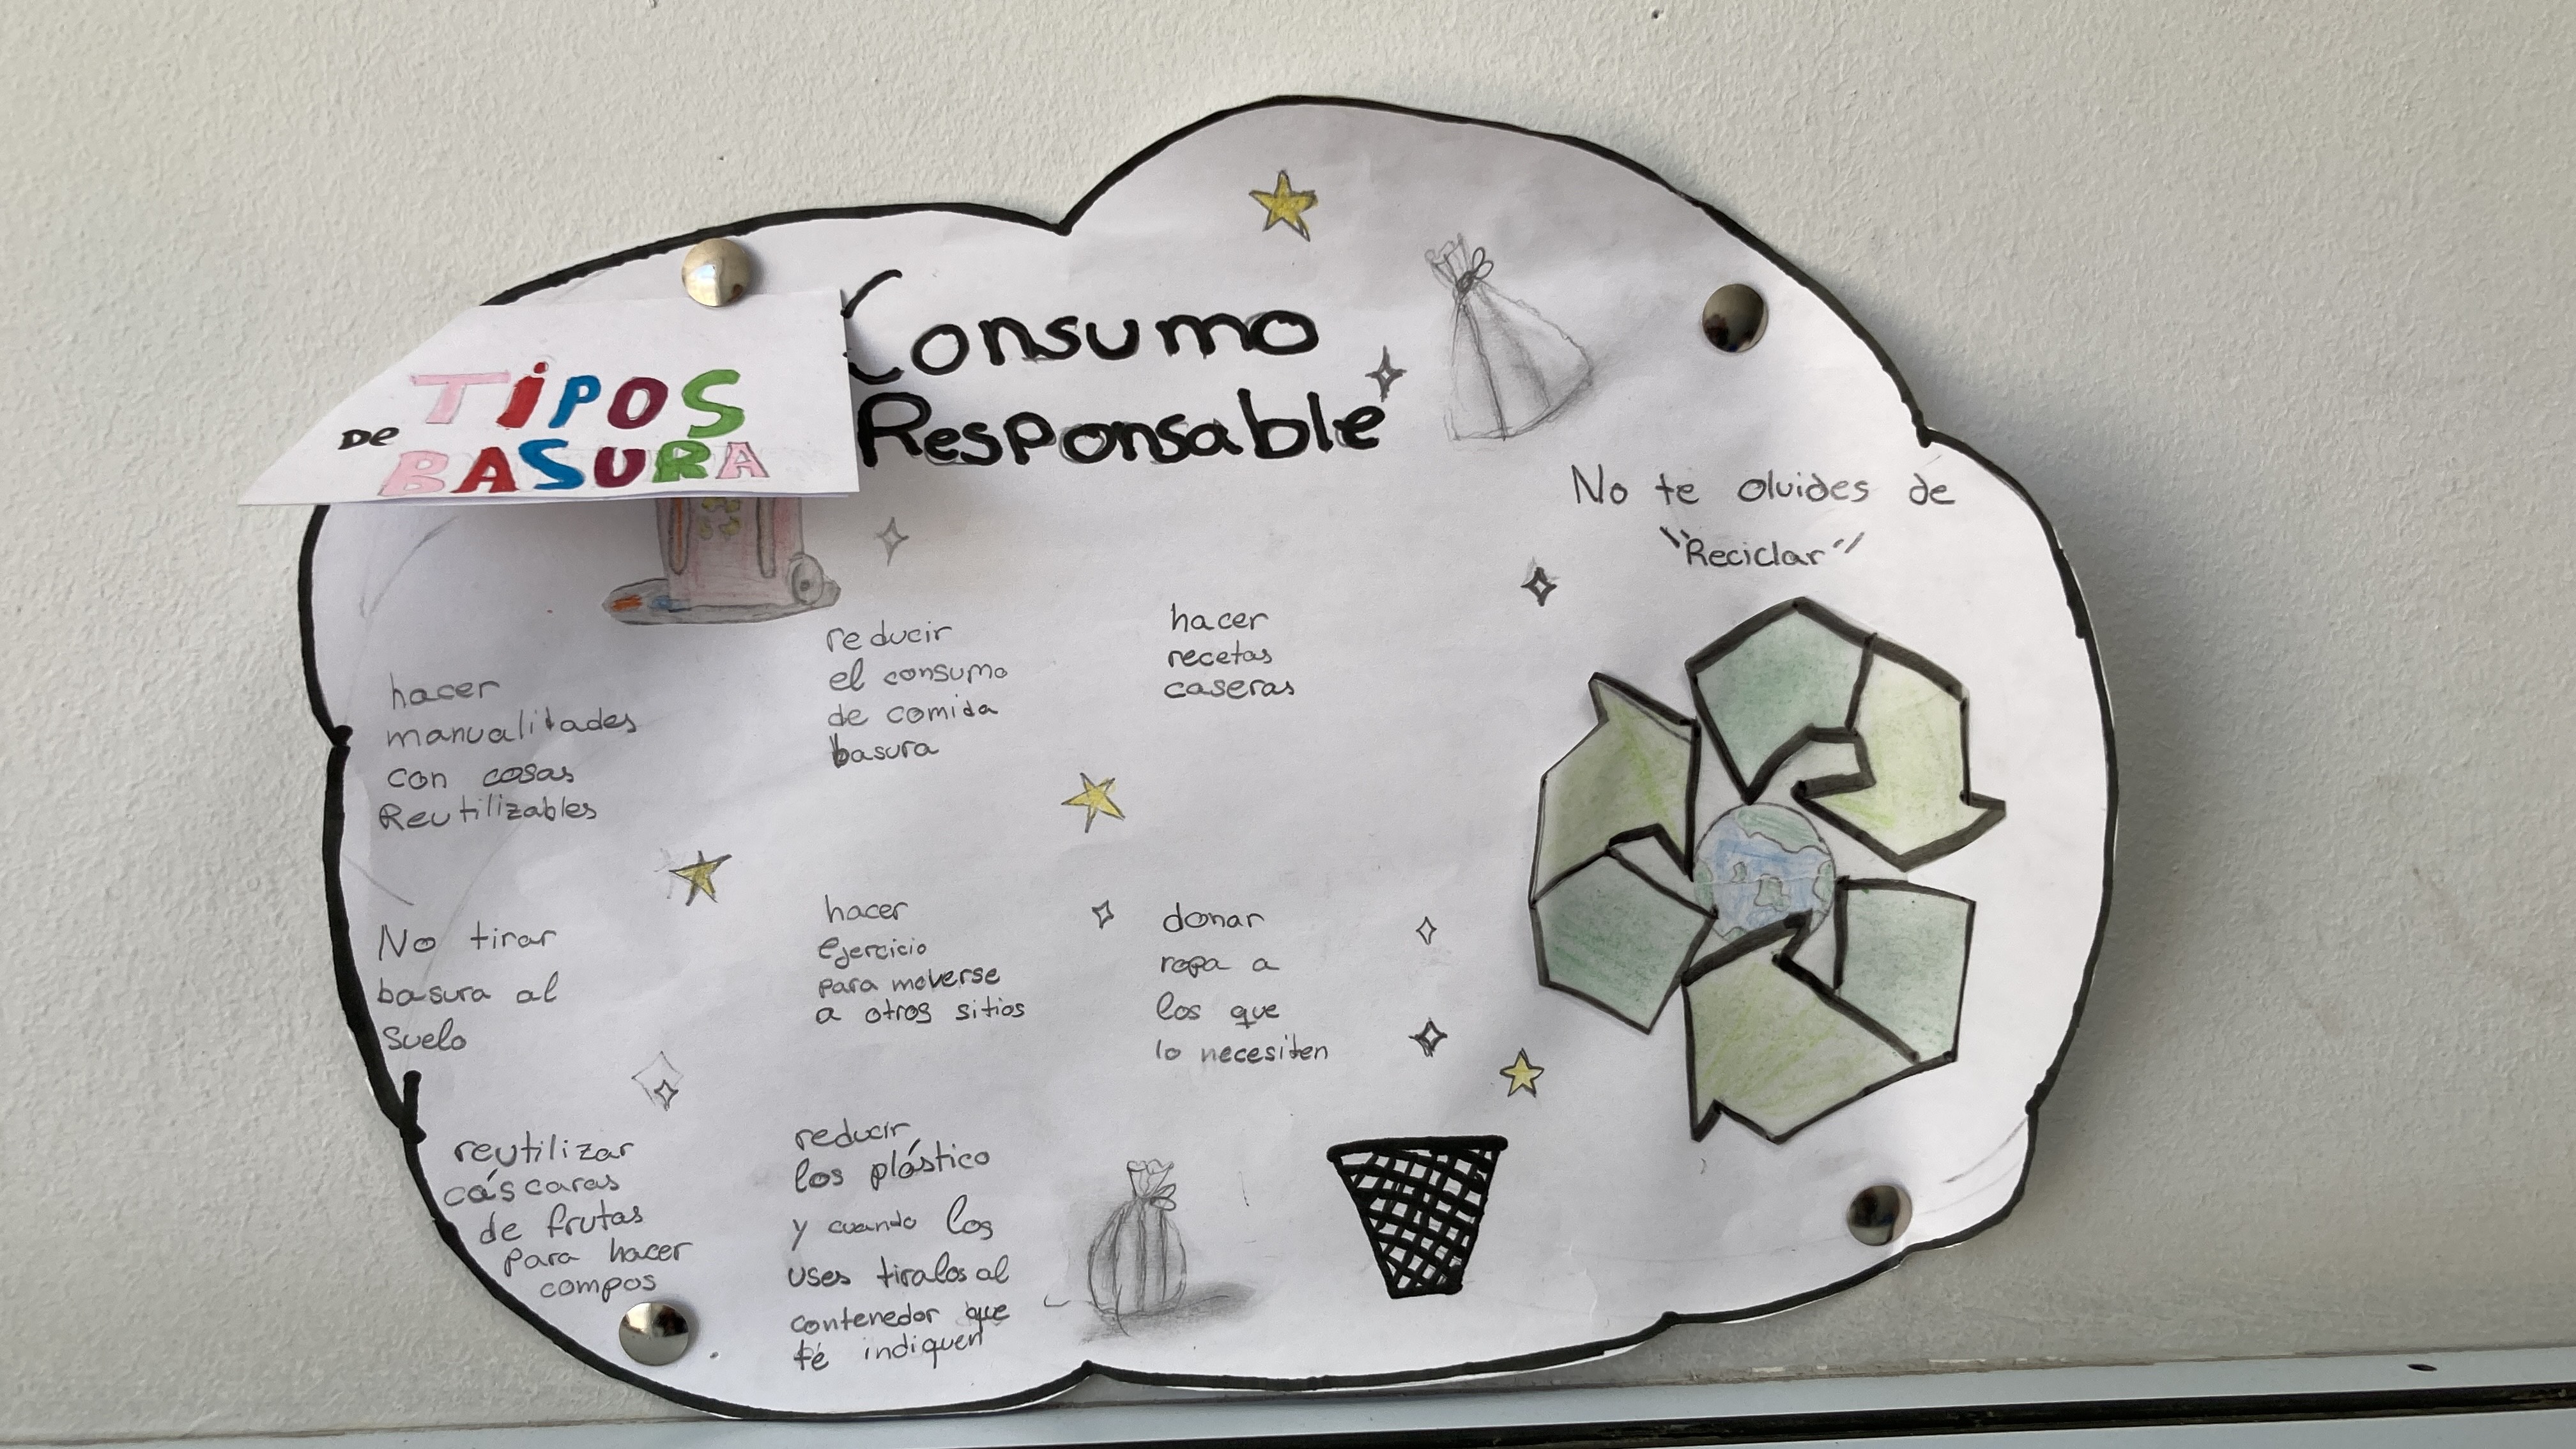 TiPOS
De
BASURA
Consumo
Responsable
No te olvides de
"Reciclar"
hacer
manualidades
con cosas
Reutilizables
reducir
el consumo
de comida
basura
hacer
recetas
caseras
No tirar
basura al
suelo
hacer
ejercicio
para moverse
a otros sitios
donar
ropa a
los que
lo necesiten
reutilizar
cáscaras
de frutas
para hacer
compos
reducir
los plástico
y cuando los
uses tiralos al
contenedor que
té indiquen